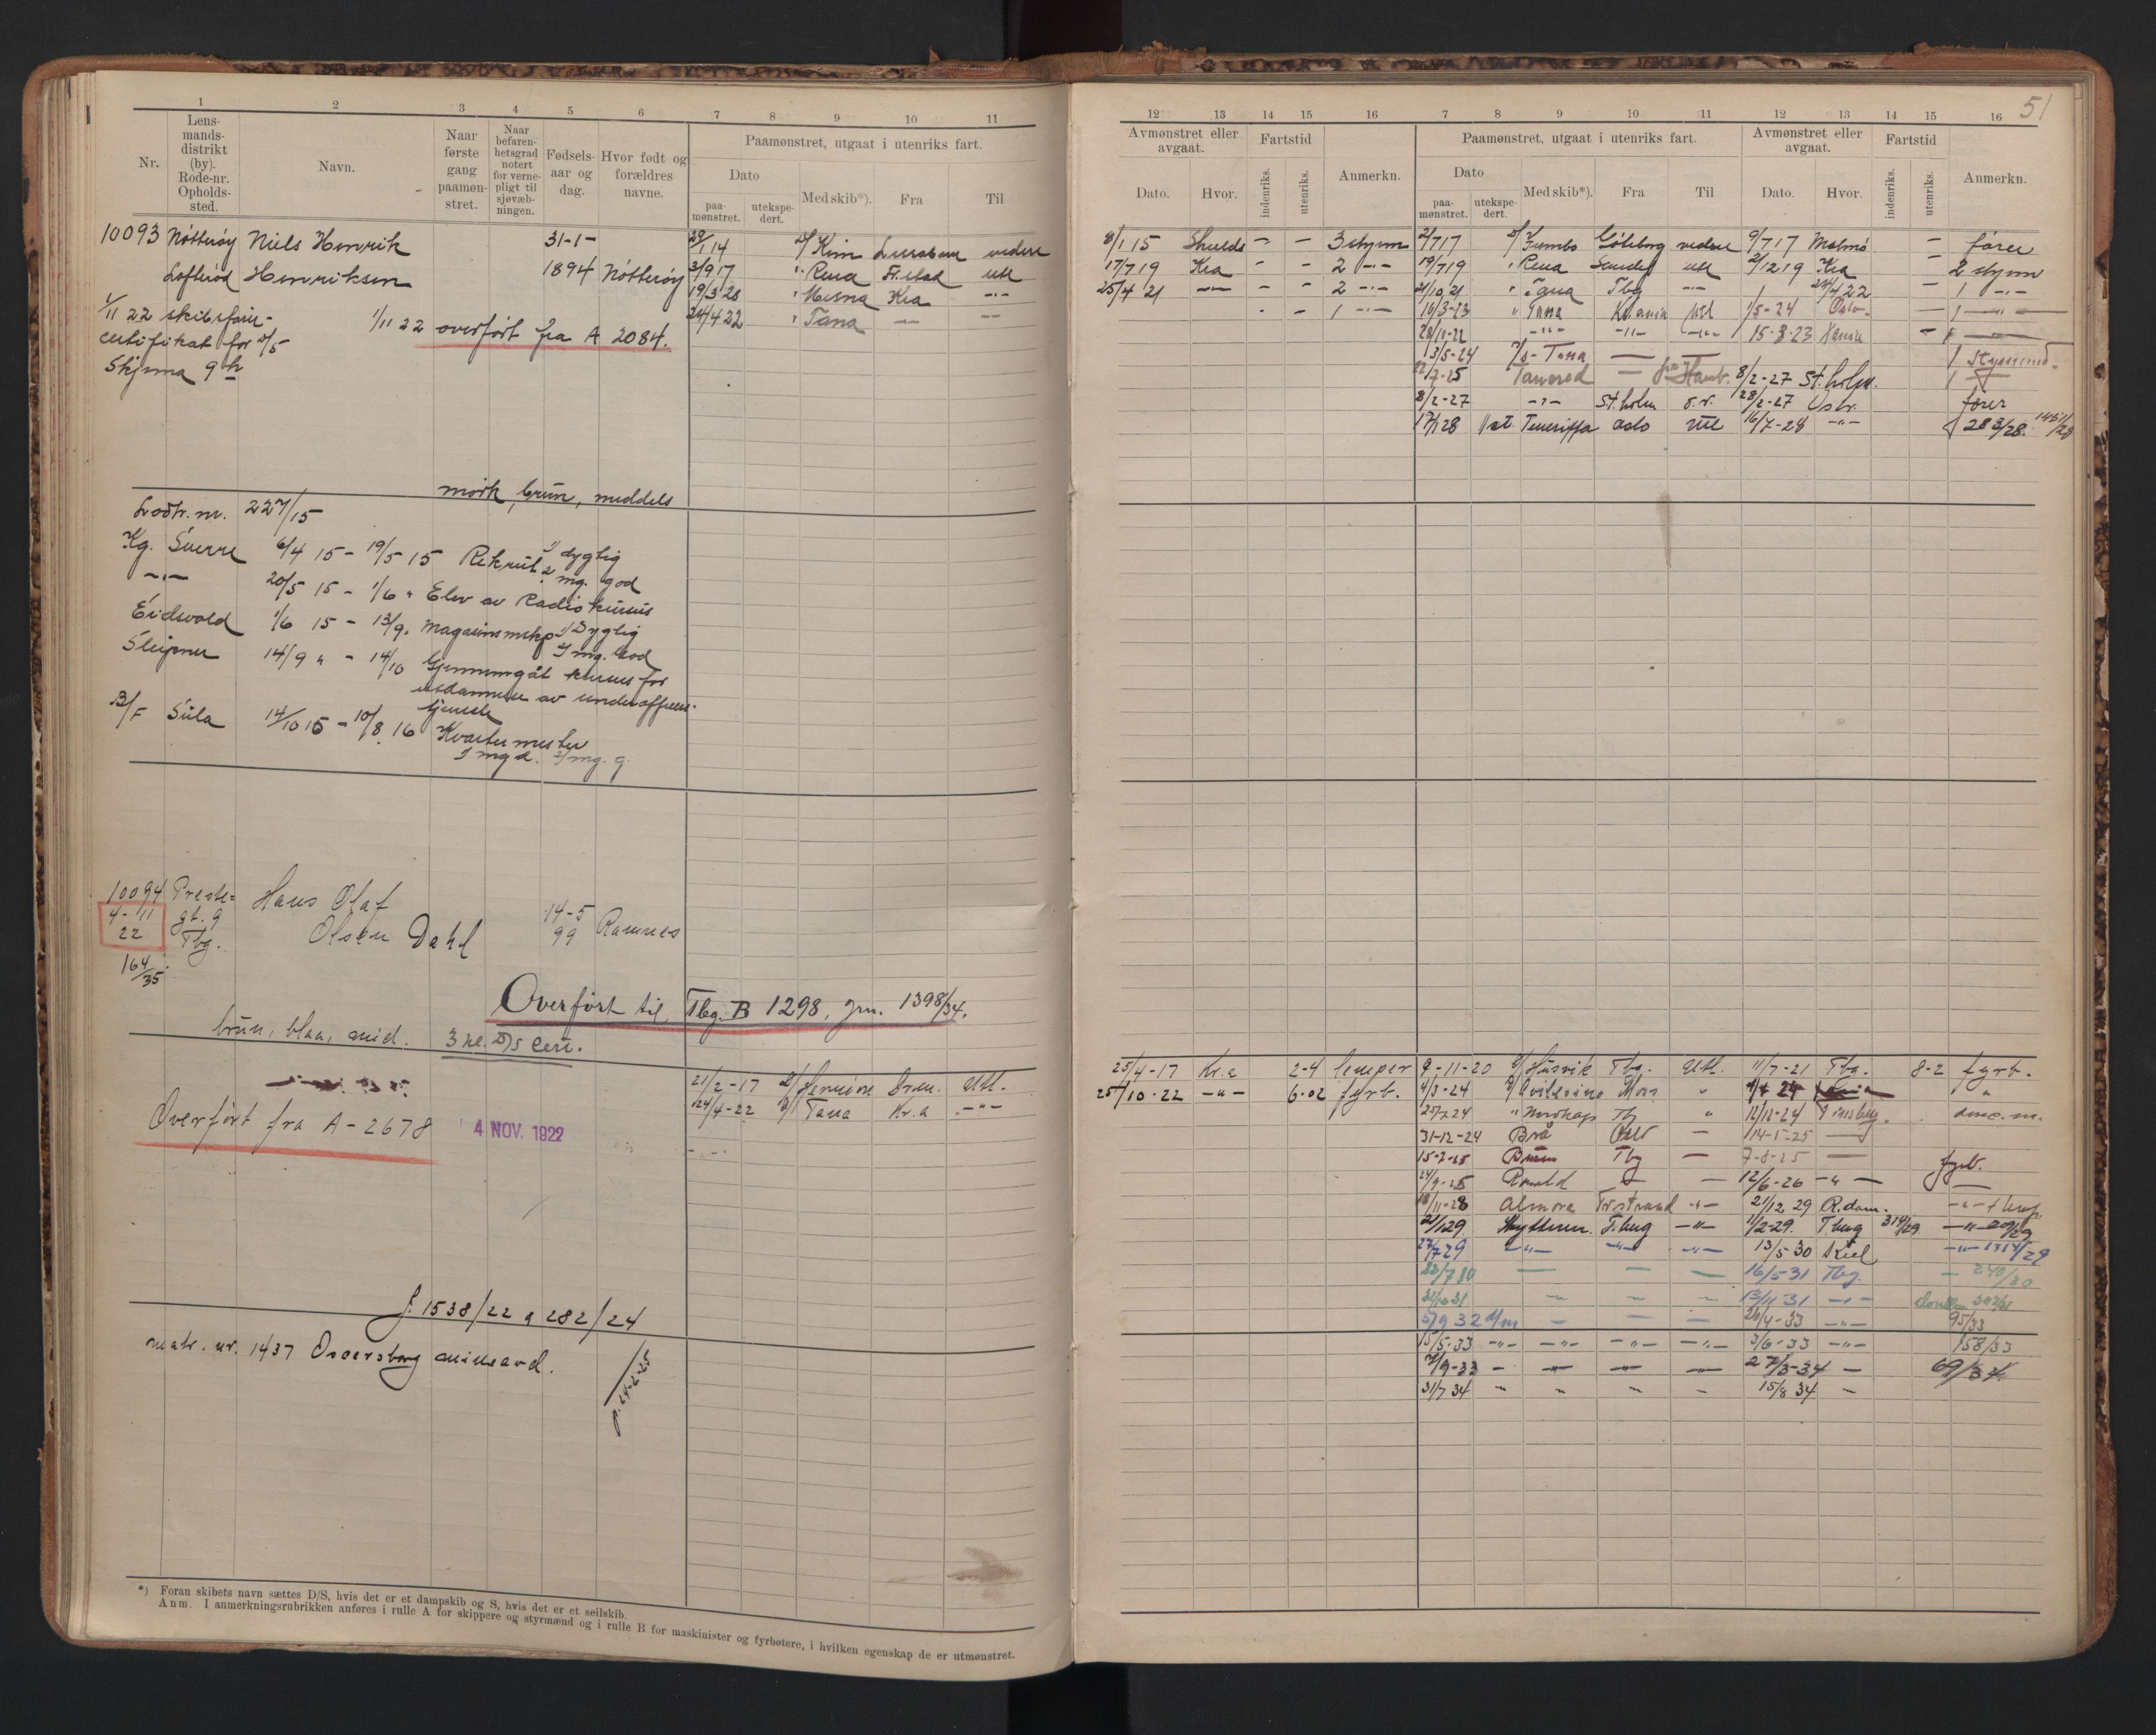 1 2 3 4 5 6 7 8 9 10 11
Nr.
Lens-
mands-
distrikt
(by).
Rode-nr.
Opholds-
sted.
Navn.
Naar
første
gang
paamøn-
stret.
Naar
befaren-
hetsgrad
notert
for verne-
pligt til
sjøvæb-
ningen.
Fødsels-
aar og
dag.
Hvor født og
forældres
navne.
Paamønstret, utgaat i utenriks fart.
Dato
paa-
mønstret.
utekspe-
dert.
Med skib*).
Fra
Til
10093 Nøtterøy Niels Henrik 31-1-
Henriksen 1894 Nøtterøy
29/1 14 Kim videre
3/9 17 " Rena Fr.stad utl
19/3 20 " Mesna Kra -"-
24/4 22 " Tana — —
1/11 22 skibsfører-
certifikat for
Skjema 9
1/11 22 overført fra A 2084.
mørk, brun, middels
Lodtr. nr. 227/15
Kg. Sverre 6/4 15 - 19/5 15 Rekrut 1/ dygtig
2 mg. god
-"- 20/5 15 - 1/6 " Elev av Radiokursus
Eidsvold 1/6 15 - 13/9 " 1/ Dygtig
2 mg. God
Sleipner 14/9 " - 14/10 Gjennemgåt kursus for
utdannelse av underofficers-
tjeneste
B/F Sula 14/10 15 - 10/8 16 Kvartermester
1 mg d. 2/ mg. g.
10094 Preste-
gt. 9
Tbg.
4-11
22
164/35
Hans Olaf
Olsen Dahl
14-5
99
Ramnes
Overført til Tbg. B 1298, jrn. 1398/34.
brun, blaa, mid. 3 kl. D/S cert.
21/2-17 D/ Hermion Dram. Utl.
24/4-22 D/ Tana Kr.a -"-
Overført fra A-2678
4 NOV. 1922
J. 1538/22 & 282/24
matr. nr. 1437 Oscarsborg minevd.
p. 24-2-25
*) Foran skibets navn sættes D/S, hvis det er et dampskib og S, hvis det er et seilskib.
Anm. I anmerkningsrubrikken anføres i rulle A for skippere og styrmænd og i rulle B for maskinister og fyrbøtere, i hvilken egenskap de er utmønstret.
51
12 13 14 15 16 7 8 9 10 11 12 13 14 15 16
Avmønstret eller
avgaat.
Dato.
Hvor.
Fartstid
indenriks.
utenriks.
Anmerkn.
Paamønstret, utgaat i utenriks fart.
Dato
paa-
mønstret.
utekspe-
dert.
Med skib*).
Fra
Til
Avmønstret eller
avgaat.
Dato.
Hvor.
Fartstid
indenriks.
utenriks.
Anmerkn.
8/1 15 Shields - - 3 styrm 2/7 17 Jumbo Göteborg videre 9/7 17 Malmö - fører
17/7 19 Kra - - 2 -"- 19/7 19 " Rena utl 2/12 19 Kra - 2 styrm
25/4 21 -"- - - 2 -"- 21/10 21 " Tana Tbg -"- 24/4 22 1 -"-
- - 1 -"- 10/3-23 " Tana Kr.ania Utl 1/5-24 Oslo - 1 -"-
28/11-22 -"- -"- -"- 15-3-23
13/5-24 Tana — — 1 Styrmand
12/7-25 Tancred — Hamb. 8/2-27 St.holm. 1
8/2-27 -"- St.holm 28/2-27 Oslo fører
17/1 28 Teneriffa Oslo Utl 16/7-28 -"- 283/28.
25/4-17 Kr.a 2-4 lemper 9-11-20 D/ Husvik Tbg. Utl. 11/7-21 Tbg. 8-2 fyrb.
25/10-22 -"- 6-02 fyrb. 4/3-24 Moss " "
25/7 24 " Tbg " 12/12-24 Tønsberg. donc. m.
31-12-24 Brå Oslo — 14-1-25 —
15-2-25 Tbg — 7-8-25 — fyrb.
24/9-25 Ronald — — 12/6-26 -"- —
18/11-28 Almora -"- 21/12 29 R.dam. -"-
21/1 29. T.berg -"- 1/2-29. T.berg 314/29 -"- 20/29
27/7 29 -"- -"- -"- 13/5-30 Kiel -"- 1314/29
23/7 30 — — — 16/5-31 Tbg. - 240/30
31/10 31 ~ ~ ~ 13/11 31 -"-
5/9 32 — — — 26/4-33 -"- 95/33
15/5-33 -"- -"- -"- -"- 3/6-33 -"- 158/33
7/9-33 - -"- — — 27/3-34 - 69/34
31/7 34 ~ ~ ~ ~ 15/8 34 -